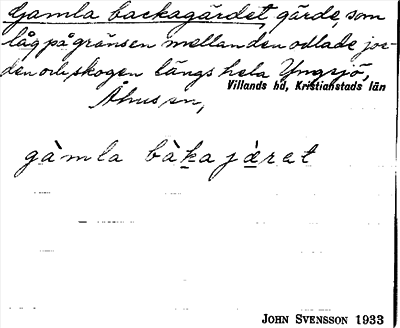 Gamla backagärdet, gärde, som
låg på gränsen mellan den odlade jor-
den och skogen längs hela Yngsjö,
Villands hd, Kristianstads län
Åhus sn,
gàmla bàkajæret
JOHN SVENSSON 1933